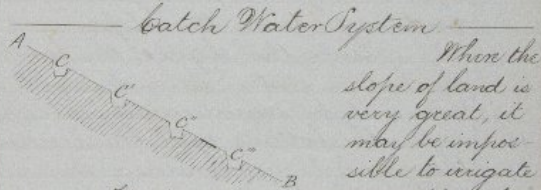 Catch Water System
A
Where the
C
slope of land is
C'
very great, it
C"
may be impos-
C'''
sible to irrigate
B